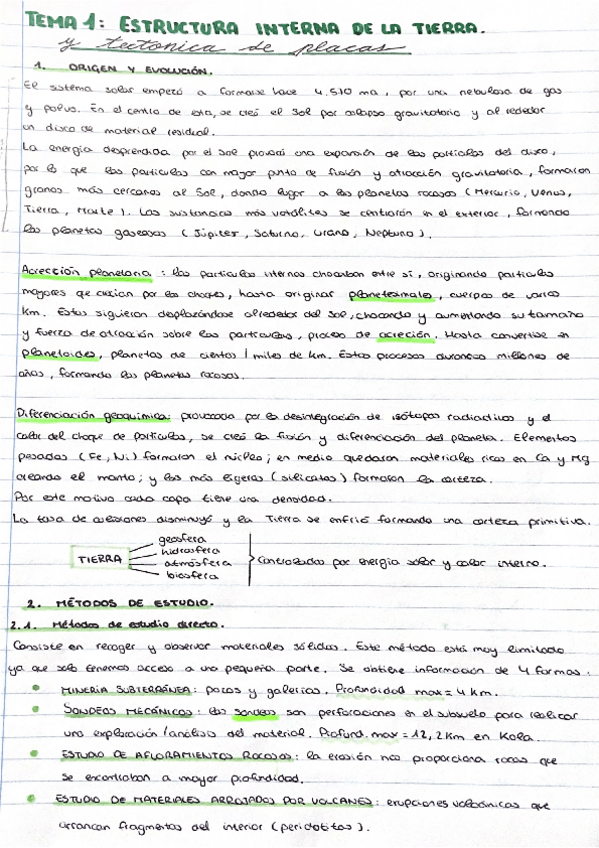 TEMA 1: ESTRUCTURA INTERNA DE LA TIERRA.
y tectonica de placas
1. ORIGEN Y EVOLUCIÓN.
El sistema solar empezó a formarse hace 4.510 ma, por una nebulosa de gas
y polvo. En el centro de esta, se creó el Sol por colapso gravitatorio y al rededor
un disco de material residual.
La energía desprendida por el sol provocó una expansión de las partículas del disco,
por lo que las partículas con mayor punto de fusión y atracción gravitatoria, formaron
granos más cercanos al Sol, dando lugar a los planetas rocosos (Mercurio, Venus,
Tierra, Marte). Las sustancias más volátiles se centrarón en el exterior, formando
los planetas gaseosos (Júpiter, Saturno, Urano, Neptuno).
Acrección planetaria: las partículas internas chocaban entre sí, originando partículas
mayores que crecían por los choques, hasta originar planetesimales, cuerpos de varios
Km. Estos siguieron desplazándose alrededor del Sol, chocando y aumentando su tamaño
y fuerza de atracción sobre las partículas, proceso de acreción. Hasta convertirse en
planetoides, planetas de cientos / miles de km. Estos procesos duraron millones de
años, formando los planetas rocosos.
Diferenciación geoquímica: provocada por la desintegración de isótopos radiactivos y el
calor del choque de partículas, se creó la fusión y diferenciación del planeta. Elementos
pesados (Fe, Ni) formaron el núcleo; en medio quedaron materiales ricos en Ca y Mg
creando el manto; y los más ligeros (silicatos) formaron la corteza.
Por este motivo cada capa tiene una densidad.
La tasa de colisiones disminuyó y la Tierra se enfrió formando una corteza primitiva.
TIERRA
geosfera
hidrosfera
atmósfera
biosfera
Controlados por energía solar y calor interno.
2. MÉTODOS DE ESTUDIO.
2.1. Métodos de estudio directo.
Consiste en recoger y observar materiales sólidos. Este método está muy limitado
ya que solo tenemos acceso a una pequeña parte. Se obtiene información de 4 formas:
MINERÍA SUBTERRÁNEA: pozos y galerías. Profundidad max = 4 km.
SONDEOS MECÁNICOS: los sondeos son perforaciones en el subsuelo para realizar
una exploración / análisis del material. Profund. max = 12,2 km en Kola.
ESTUDIO DE AFLORAMIENTOS ROCOSOS: la erosión nos proporciona rocas que
se encontraban a mayor profundidad.
ESTUDIO DE MATERIALES ARROJADOS POR VOLCANES: erupciones volcánicas que
arrancan fragmentos del interior (peridotitas).